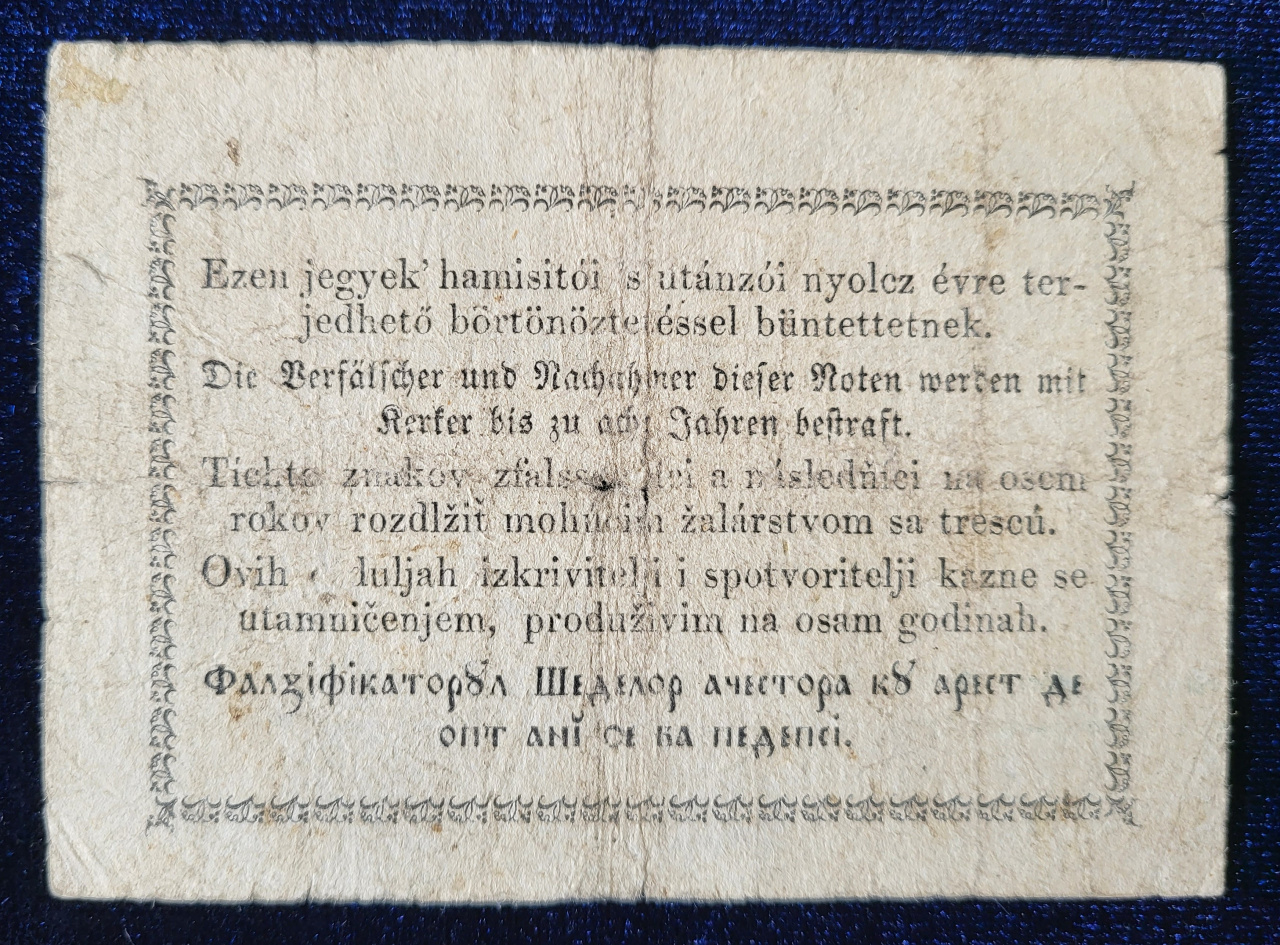 Ezen jegyek' hamisitói 's utánzói nyolcz évre ter-
jedhető börtönöztetéssel büntettetnek.
Die Verfälscher und Nachahmer dieser Noten werden mit
Kerker bis zu acht Jahren bestraft.
Tichto znakov a následňíci na osem
rokov rozdlžiť mohúcim žalárstvom sa trescú.
Ovih izkrivitelji i spotvoritelji kazne se
utamničenjem, produživim na osam godinah.
Фалзіфікаторꙋл Шеделор ачестора кꙋ арест де
опт анĭ се ва педепсі.